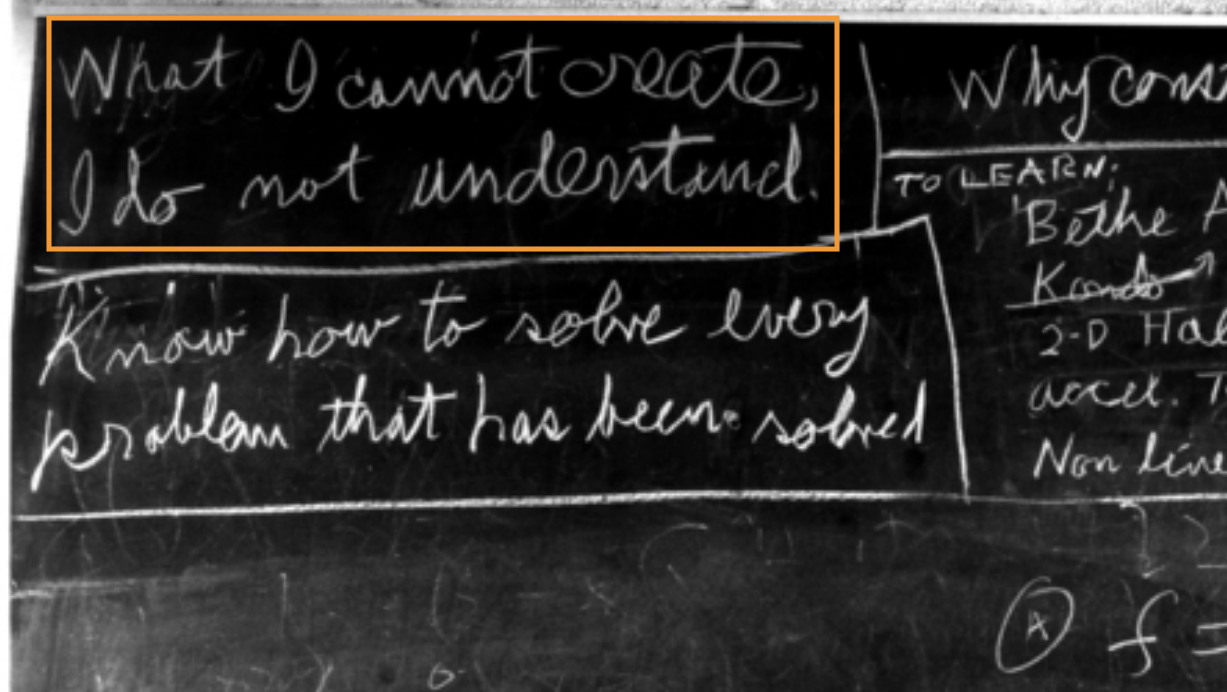 What I cannot create,
I do not understand.
Know how to solve every
problem that has been solved
Why
TO LEARN:
Bethe
Kondo
2-D
accel.
Non
A f =